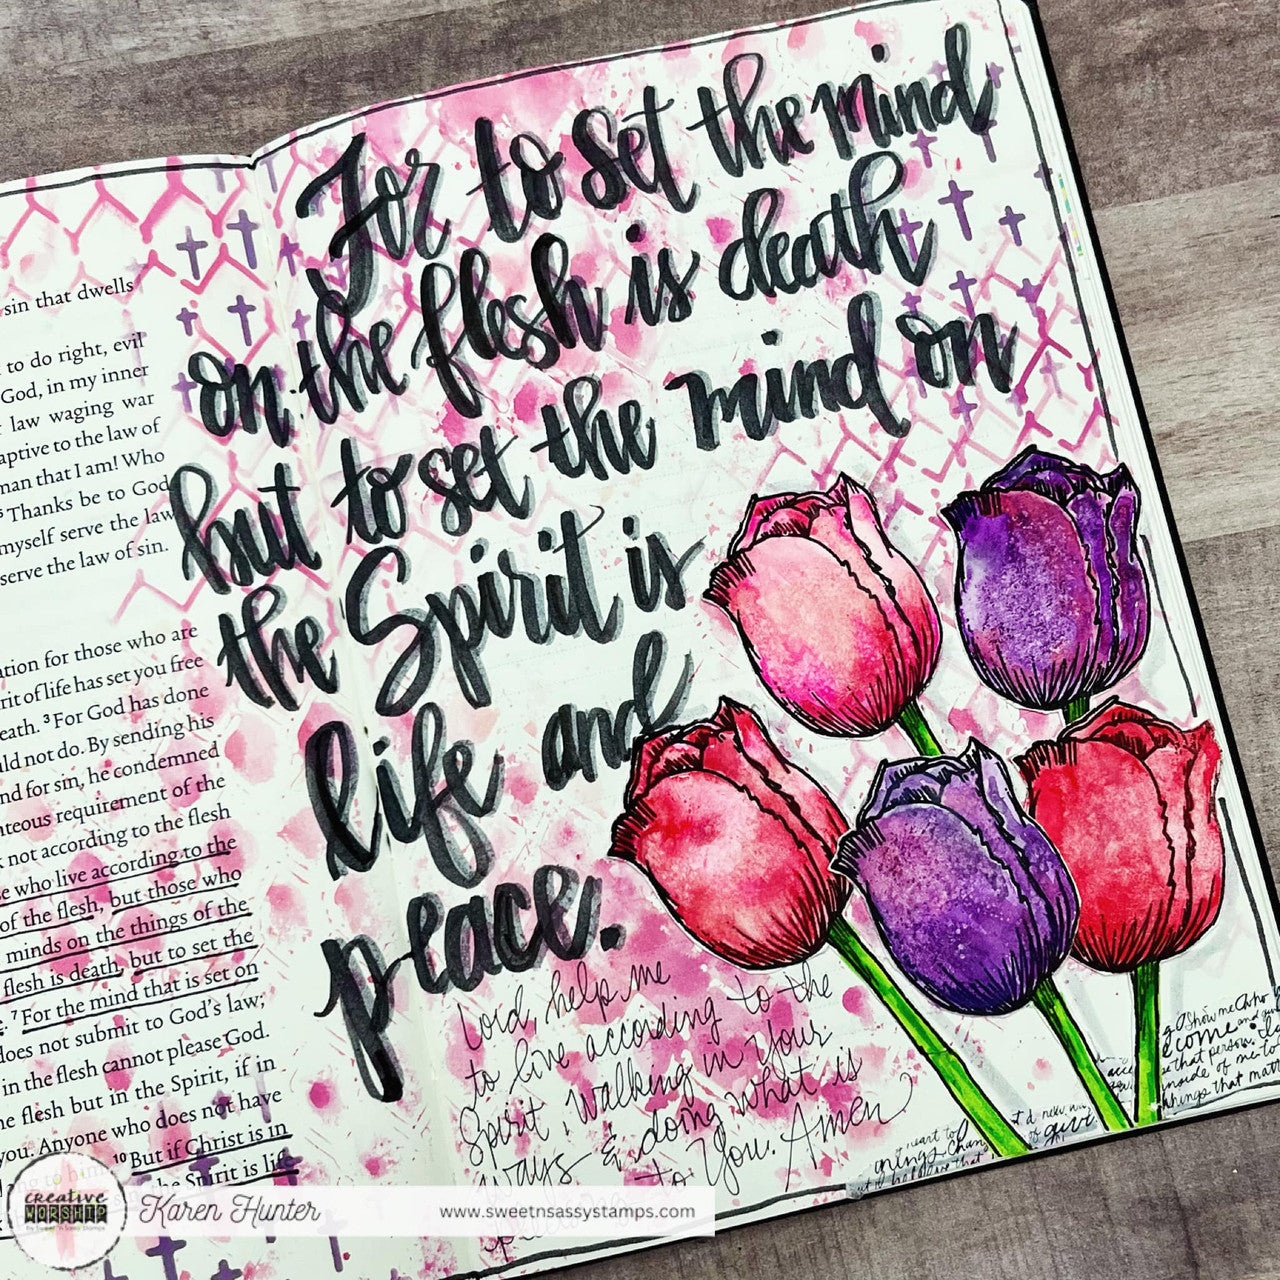 For to set the mind
on the flesh is death
but to set the mind on
the Spirit is
life and
peace.
sin that dwells
to do right, evil
God, in my inner
law waging war
captive to the law of
man that I am! Who
Thanks be to God
myself serve the law
serve the law of sin.
for those who are
of life has set you free
3 For God has done
not do. By sending his
for sin, he condemned
requirement of the
not according to the flesh
who live according to the
of the flesh, but those who
minds on the things of the
flesh is death, but to set the
7 For the mind that is set on
does not submit to God's law;
in the flesh cannot please God.
flesh but in the Spirit, if in
you. Anyone who does not have
10 But if Christ is in
the Spirit is life
Lord, help me
to live according to the
Spirit, walking in Your
ways & doing what is
to You. Amen
Show me
come and
that person.
inside of me to
things that matt
heart to
creative
WORSHIP
By Sweet 'n Sassy Stamps
Karen Hunter
www.sweetnsassystamps.com